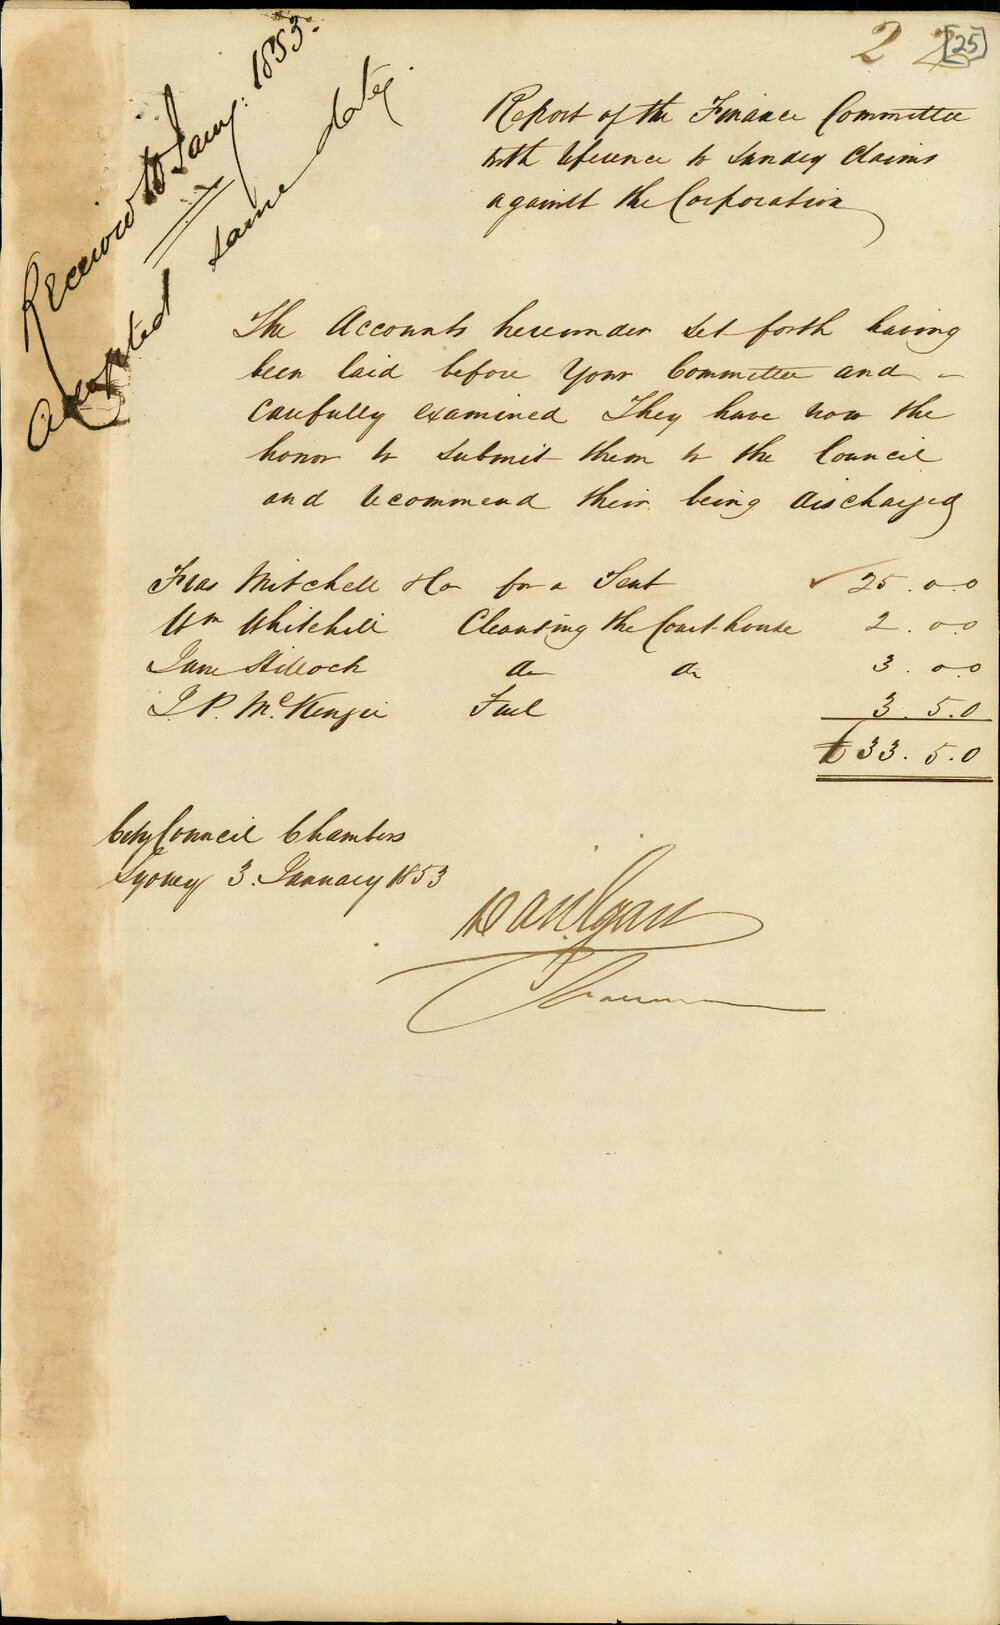 2 [25]
Received 10 Jany. 1853.
Adopted same date
Report of the Finance Committee
with reference to Sundry Claims
against the Corporation
The Accounts hereunder set forth having
been laid before Your Committee and -
carefully examined They have now the
honor to submit them to the Council
and recommend their being discharged
Fras Mitchell & Co for a Tent 25.0.0
Wm Whitehill Cleansing the Court house 2.0.0
Jane Do Do 3.0.0
J P. McKenzie Fuel 3.5.0
£33.5.0
City Council Chambers
Sydney 3. January 1853
Danl Egan
Chairman